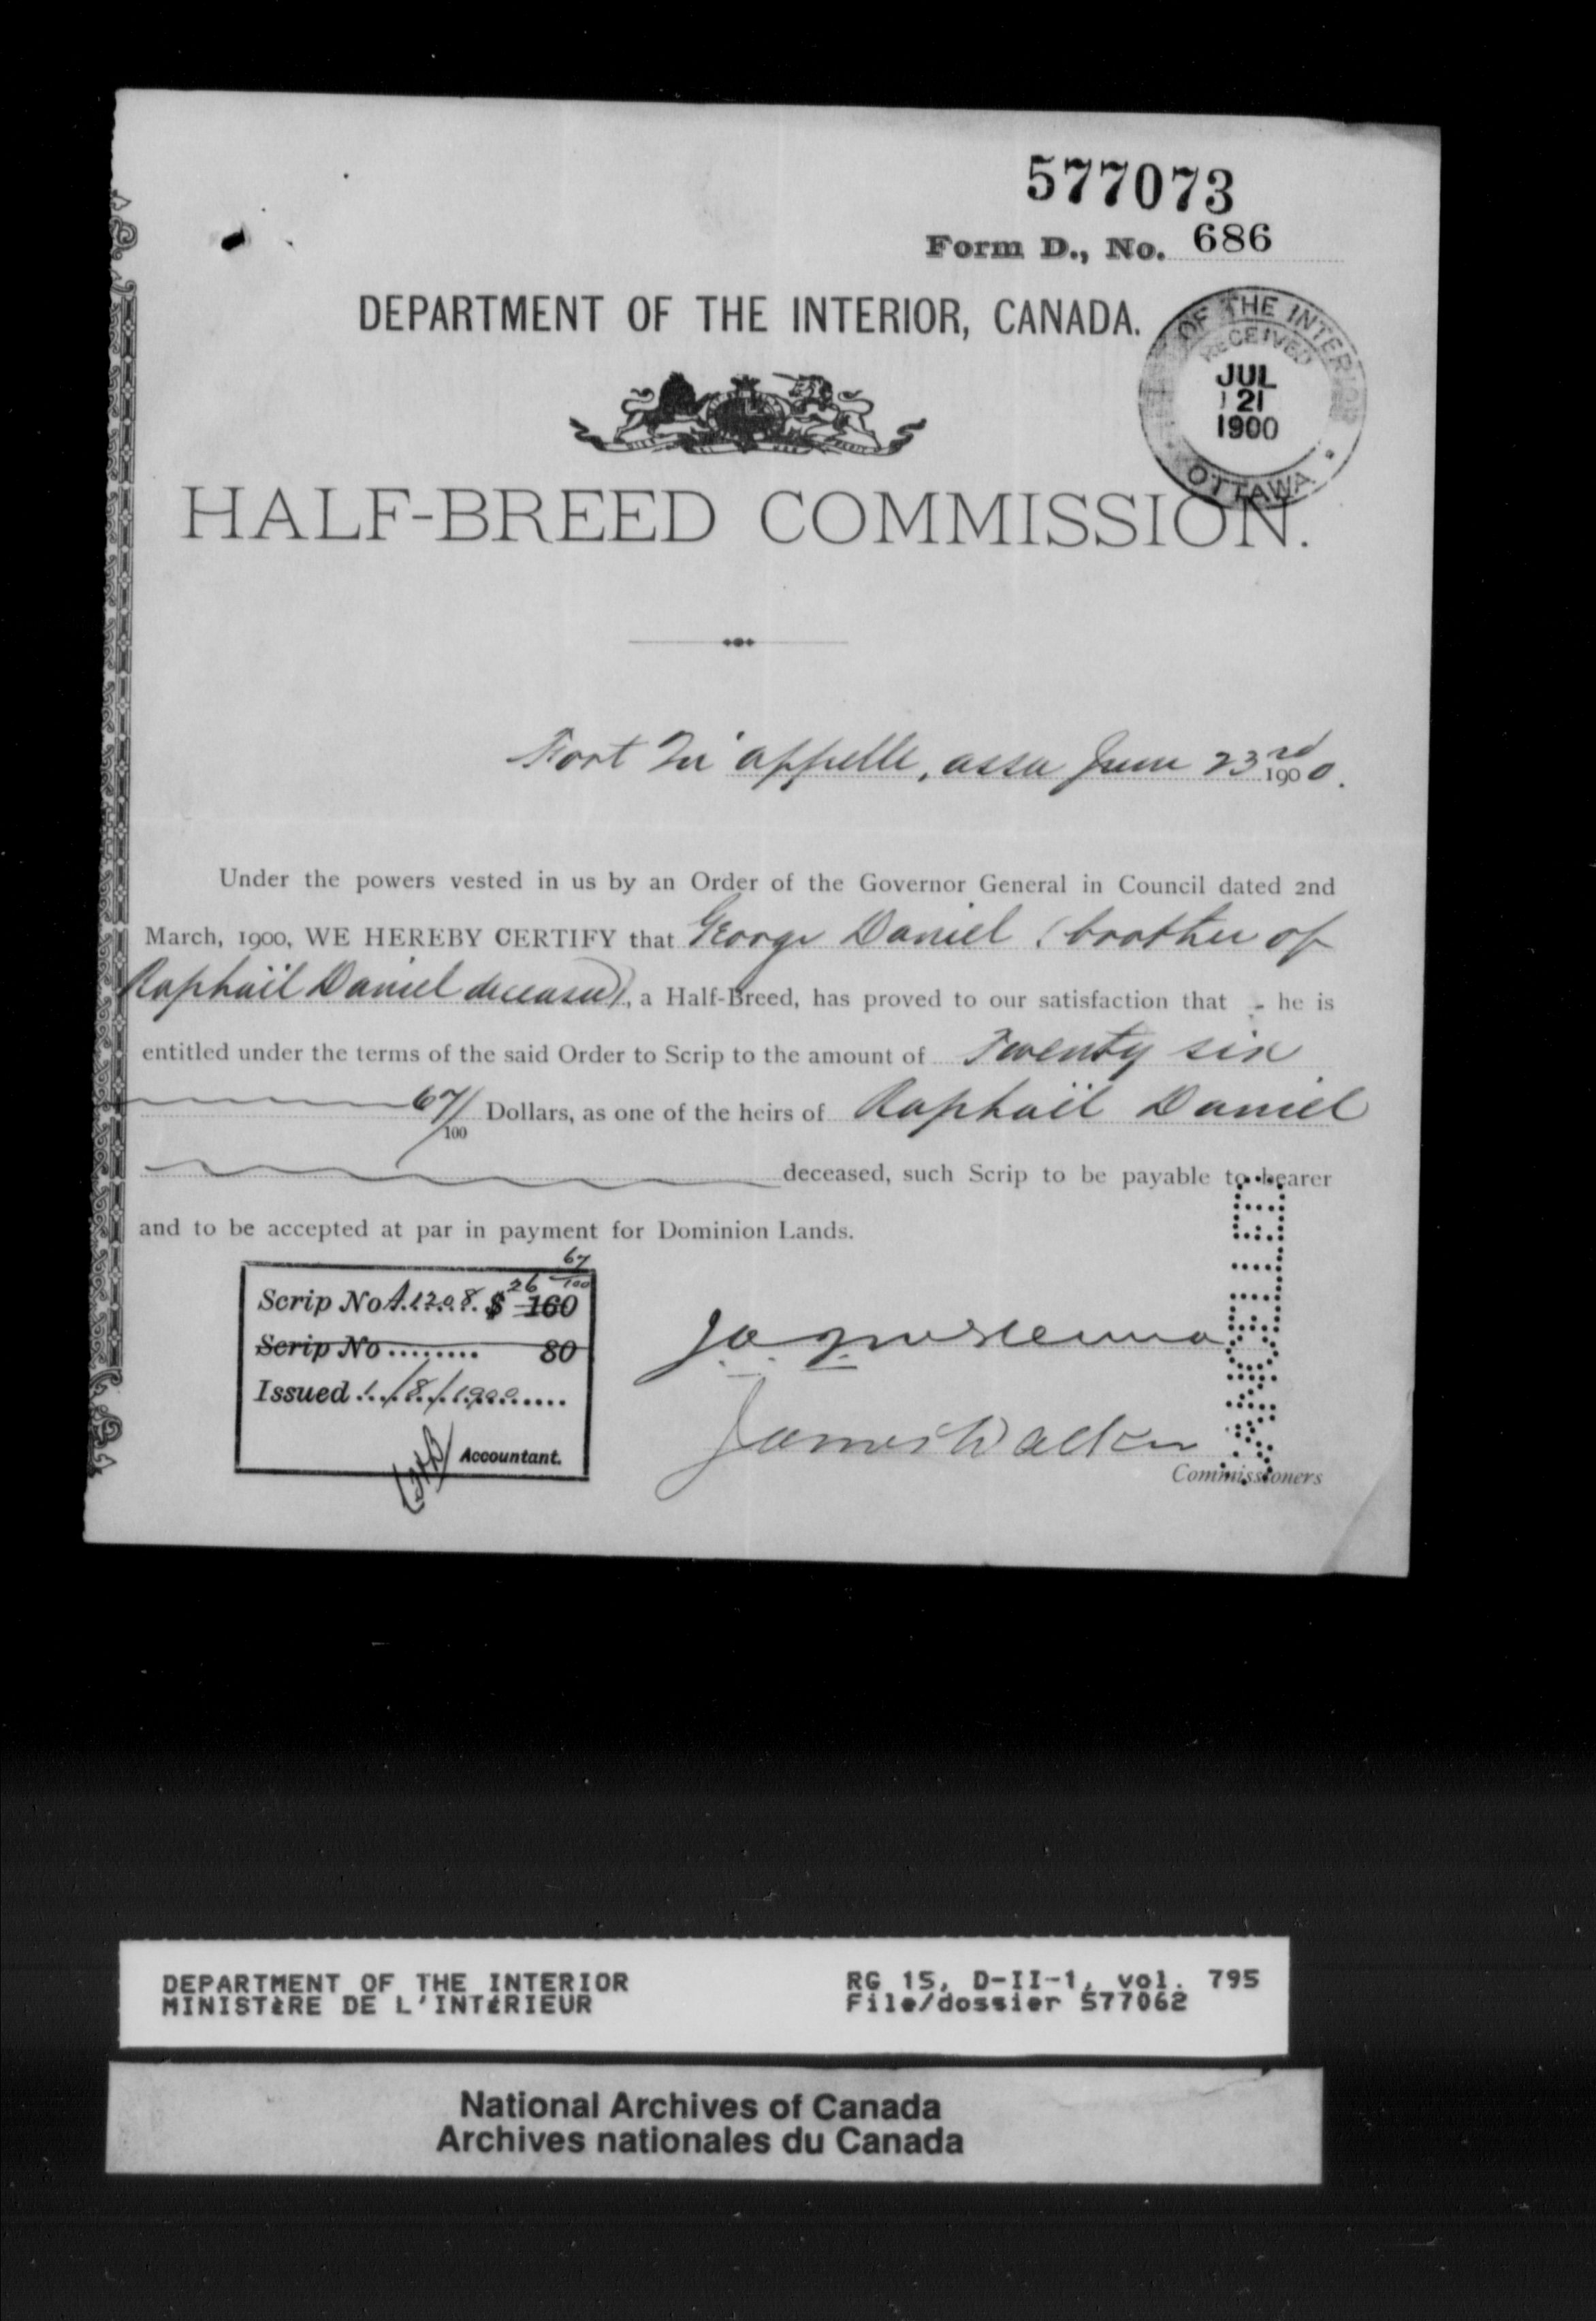 577073
Form D., No. 686
DEPARTMENT OF THE INTERIOR, CANADA.
OF THE INTERIOR
RECEIVED
JUL
21
1900
OTTAWA
HALF-BREED COMMISSION.
Fort Qu'appelle, assa June 23rd 1900.
Under the powers vested in us by an Order of the Governor General in Council dated 2nd
March, 1900, WE HEREBY CERTIFY that George Daniel (brother of
Raphaël Daniel deceased), a Half-Breed, has proved to our satisfaction that - he is
entitled under the terms of the said Order to Scrip to the amount of Twenty six
67/100 Dollars, as one of the heirs of Raphaël Daniel
deceased, such Scrip to be payable to bearer
and to be accepted at par in payment for Dominion Lands.
Scrip No A.1208 $ 160 26 67/100
Scrip No ........ 80
Issued 1/8/1900
Accountant.
James Walker
Commissioners
DEPARTMENT OF THE INTERIOR
MINISTÈRE DE L'INTÉRIEUR
RG 15, D-II-1, vol. 795
File/dossier 577062
National Archives of Canada
Archives nationales du Canada